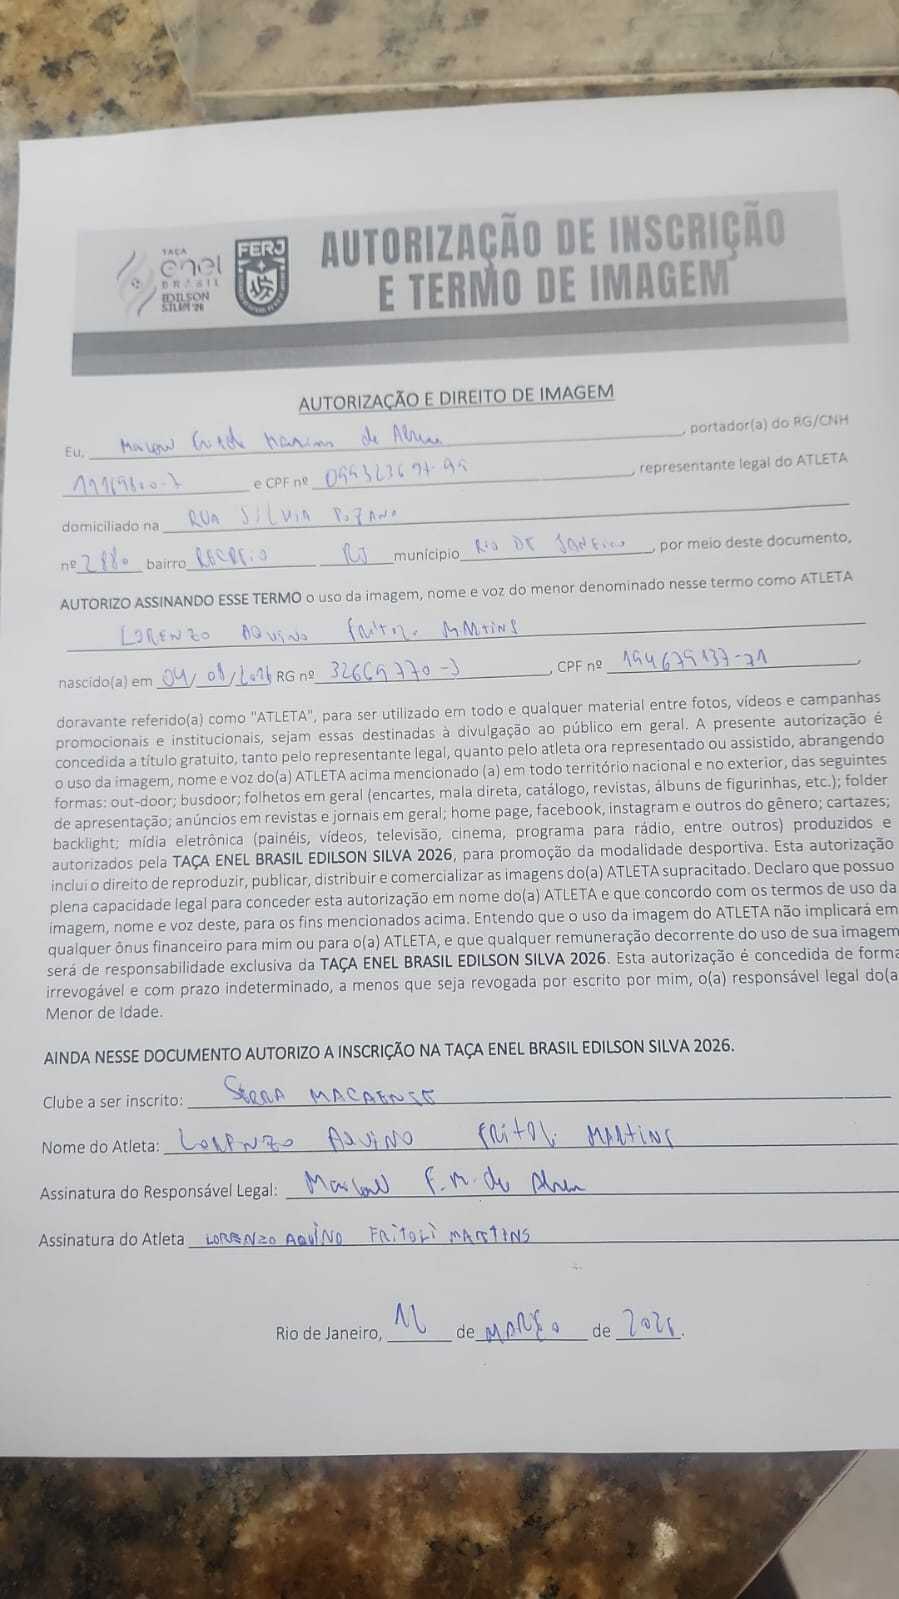 TAÇA
enel
BRASIL
EDILSON
SILVA'26
FERJ
AUTORIZAÇÃO DE INSCRIÇÃO
E TERMO DE IMAGEM
AUTORIZAÇÃO E DIREITO DE IMAGEM
Eu, de , portador(a) do RG/CNH
e CPF nº , representante legal do ATLETA
domiciliado na RUA SILVIA POZANO
nº 2880 bairro RECREIO RJ munícipio RIO DE JANEIRO , por meio deste documento,
AUTORIZO ASSINANDO ESSE TERMO o uso da imagem, nome e voz do menor denominado nesse termo como ATLETA
LORENZO AQUINO FRITOLI MARTINS
nascido(a) em 04/08/2016 RG nº 32669770-3 , CPF nº 194679137-71 ,
doravante referido(a) como "ATLETA", para ser utilizado em todo e qualquer material entre fotos, vídeos e campanhas
promocionais e institucionais, sejam essas destinadas à divulgação ao público em geral. A presente autorização é
concedida a título gratuito, tanto pelo representante legal, quanto pelo atleta ora representado ou assistido, abrangendo
o uso da imagem, nome e voz do(a) ATLETA acima mencionado (a) em todo território nacional e no exterior, das seguintes
formas: out-door; busdoor; folhetos em geral (encartes, mala direta, catálogo, revistas, álbuns de figurinhas, etc.); folder
de apresentação; anúncios em revistas e jornais em geral; home page, facebook, instagram e outros do gênero; cartazes;
backlight; mídia eletrônica (painéis, vídeos, televisão, cinema, programa para rádio, entre outros) produzidos e
autorizados pela TAÇA ENEL BRASIL EDILSON SILVA 2026, para promoção da modalidade desportiva. Esta autorização
inclui o direito de reproduzir, publicar, distribuir e comercializar as imagens do(a) ATLETA supracitado. Declaro que possuo
plena capacidade legal para conceder esta autorização em nome do(a) ATLETA e que concordo com os termos de uso da
imagem, nome e voz deste, para os fins mencionados acima. Entendo que o uso da imagem do ATLETA não implicará em
qualquer ônus financeiro para mim ou para o(a) ATLETA, e que qualquer remuneração decorrente do uso de sua imagem
será de responsabilidade exclusiva da TAÇA ENEL BRASIL EDILSON SILVA 2026. Esta autorização é concedida de forma
irrevogável e com prazo indeterminado, a menos que seja revogada por escrito por mim, o(a) responsável legal do(a)
Menor de Idade.
AINDA NESSE DOCUMENTO AUTORIZO A INSCRIÇÃO NA TAÇA ENEL BRASIL EDILSON SILVA 2026.
Clube a ser inscrito: SERRA MACAENSE
Nome do Atleta: LORENZO AQUINO FRITOLI MARTINS
Assinatura do Responsável Legal: F. M. de
Assinatura do Atleta LORENZO AQUINO FRITOLI MARTINS
Rio de Janeiro, de MARÇO de 2026.